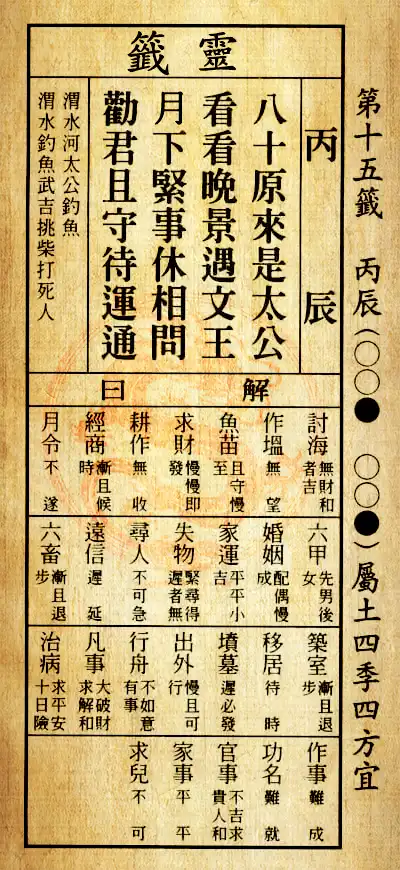 靈籤
第十五籤 丙辰(○○● ○○●)屬土四季四方宜
丙辰
八十原來是太公
看看晚景遇文王
月下緊事休相問
勸君且守待運通
渭水河太公釣魚
渭水釣魚武吉挑柴打死人
解曰
討海 無財和者吉
作塭 無望
魚苗 且守慢至
求財 慢慢即發
耕作 無收
經商 漸且候時
月令 不遂
六甲 先男後女
婚姻 配偶慢成
家運 平平小吉
失物 緊尋得遲者無
尋人 不可急
遠信 遲延
六畜 漸且退步
築室 漸且退步
移居 待時
墳墓 遲必發
出外 慢且可行
行舟 不如意有事
凡事 大破財求解和
治病 求平安十日險
作事 難成
功名 難就
官事 不吉求貴人和
家事 平平
求兒 不可